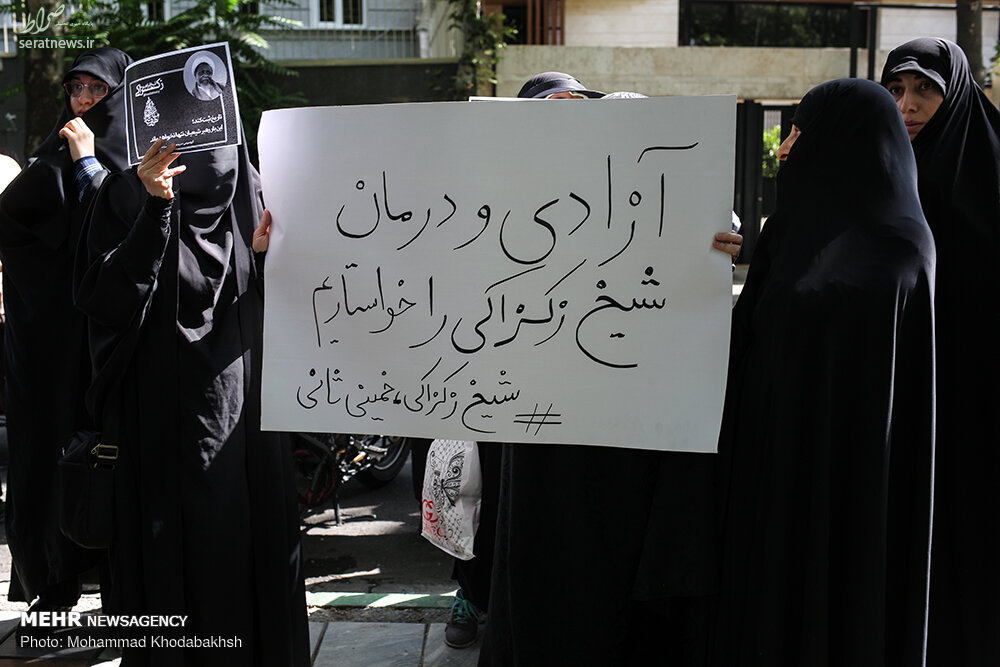 صراط
seratnews.ir
تاریخ ثبت کند؛
آزادی و درمان
شیخ زکزاکی را خواستاریم
#شیخ زکزاکی، خمینی ثانی
MEHR NEWSAGENCY
Photo: Mohammad Khodabakhsh